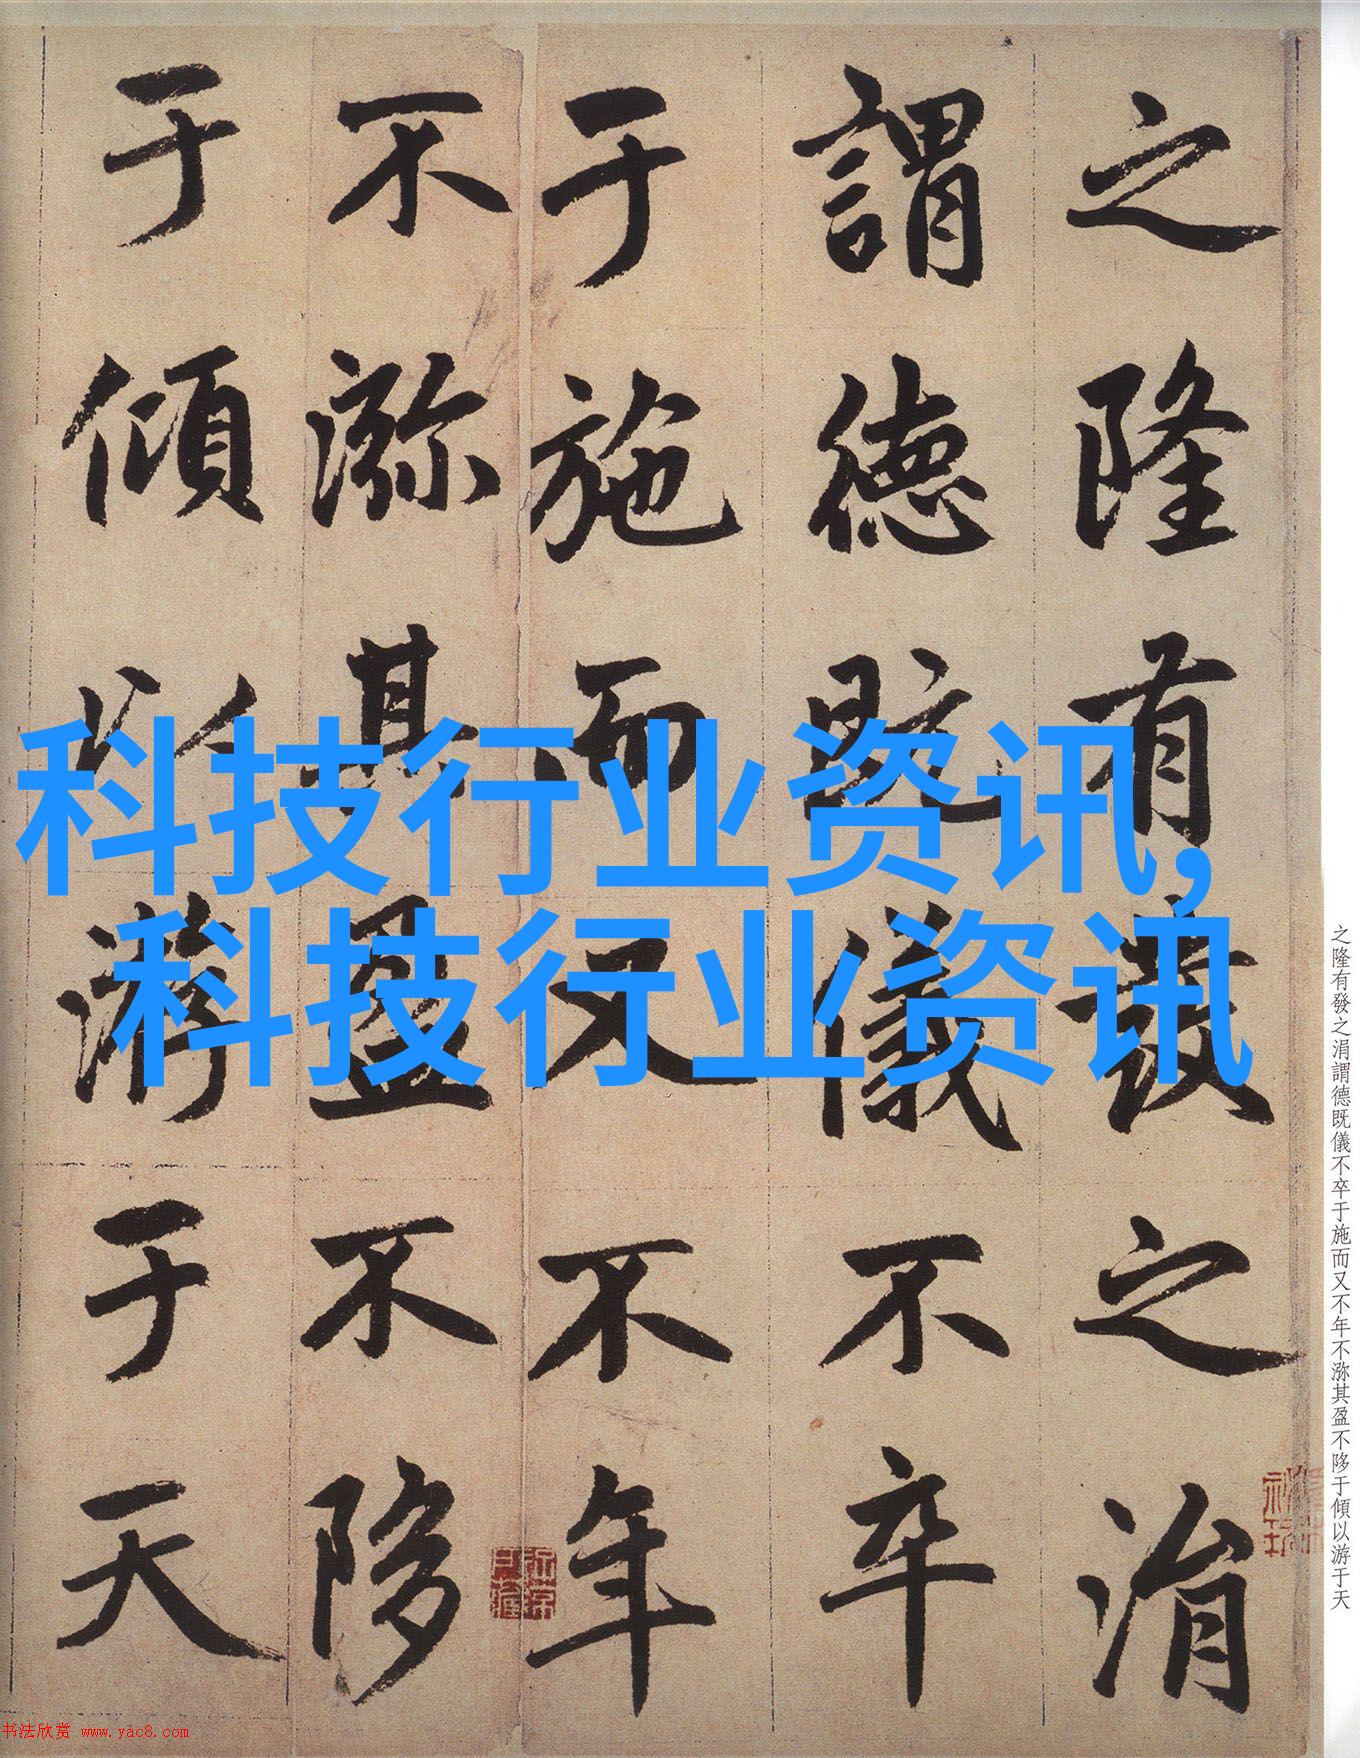 之隆有發之涓
謂德既儀不卒
于施而又不年
不㳽其盈不陊
于傾以游于天
科技行业资讯,
科技行业资讯
之隆有發之涓謂德既儀不卒于施而又不年不㳽其盈不陊于傾以游于天
书法欣赏 www.yac8.com